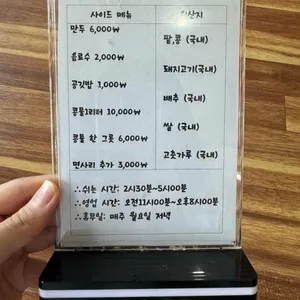 사이드 메뉴
만두 6,000₩
음료수 2,000₩
공깃밥 1,000₩
콩물1리터 10,000₩
콩물 한 그릇 6,000₩
면사리 추가 3,000₩
원산지
팥,콩 (국내)
돼지고기(국내)
배추 (국내)
쌀 (국내)
고춧가루 (국내)
∴쉬는 시간: 2시30분~5시00분
∴영업 시간: 오전11시00분~오후8시00분
∴휴무일: 매주 월요일 저녁